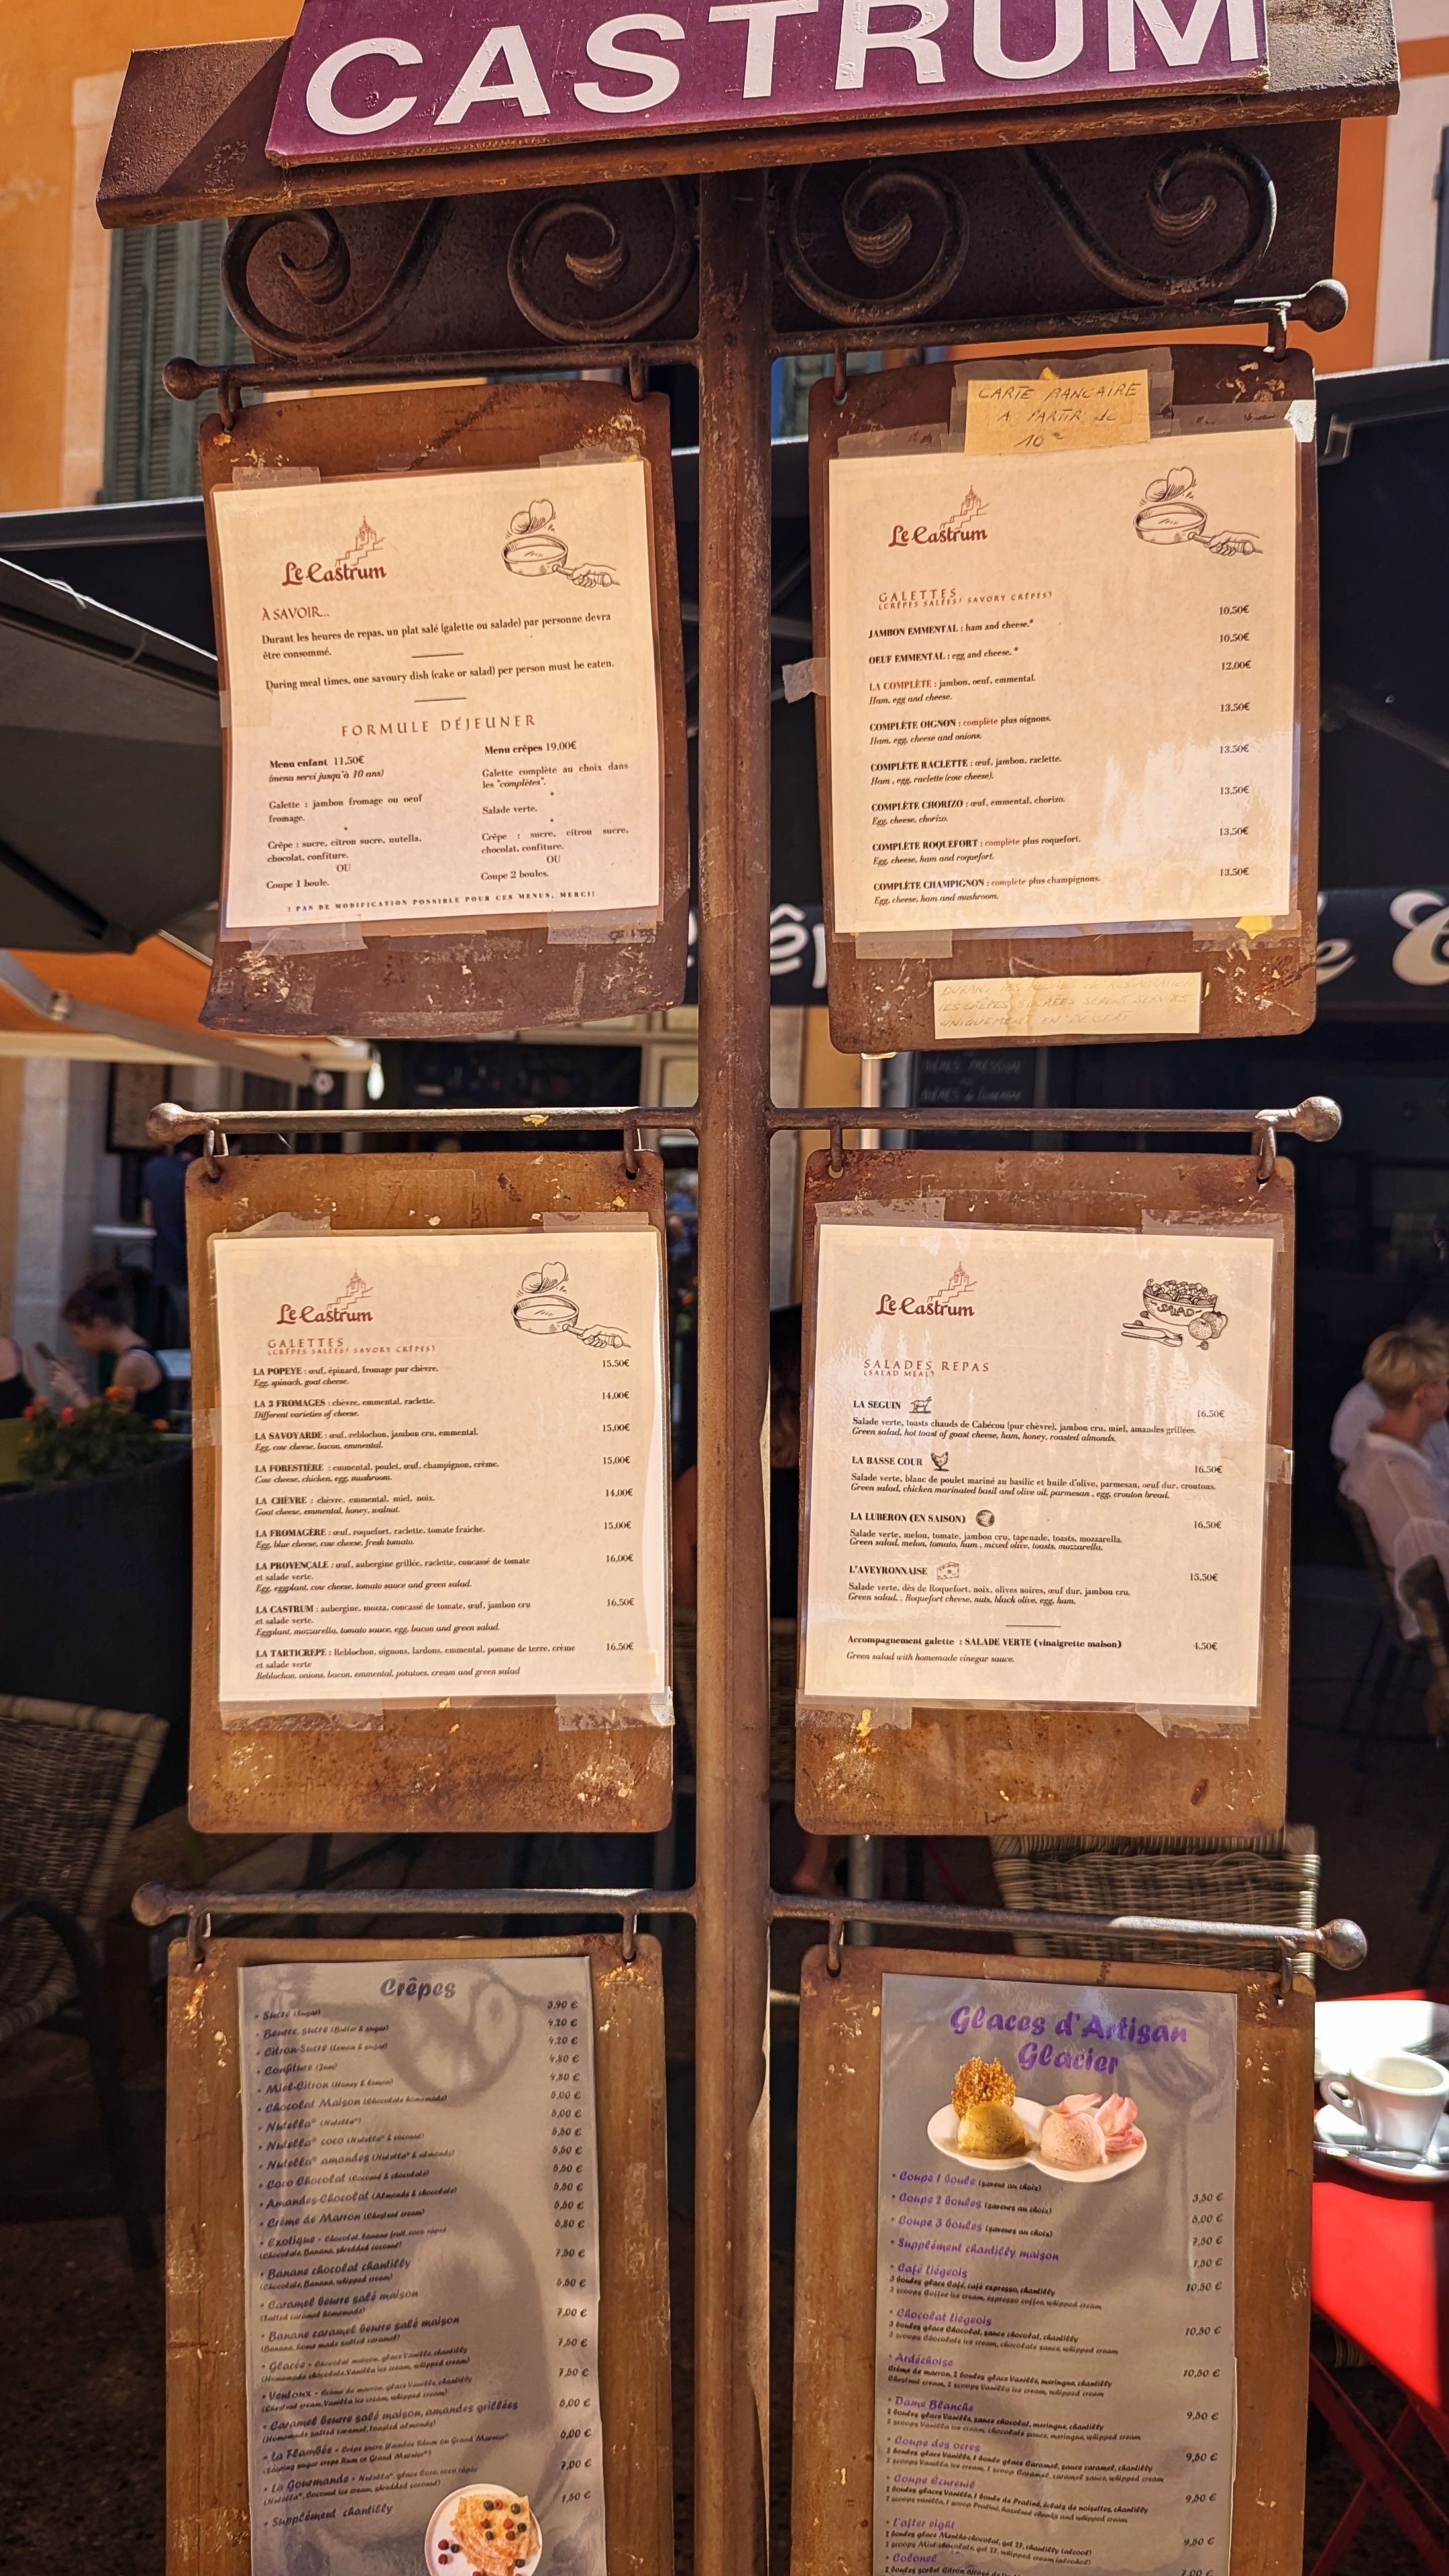 CASTRUM
Le Castrum
À SAVOIR...
Durant les heures de repas, un plat salé (galette ou salade) par personne devra
être consommé.
During meal times, one savoury dish (cake or salad) per person must be eaten.
FORMULE DÉJEUNER
Menu enfant 11,50€
(menu servi jusqu'à 10 ans)
Galette : jambon fromage ou oeuf
fromage.
*
Crêpe : sucre, citron sucre, nutella,
chocolat, confiture.
OU
Coupe 1 boule.
Menu crêpes 19,00€
Galette complète au choix dans
les "complètes".
*
Salade verte.
*
Crêpe : sucre, citron sucre,
chocolat, confiture.
OU
Coupe 2 boules.
! PAS DE MODIFICATION POSSIBLE POUR CES MENUS, MERCI!
CARTE BANCAIRE
A PARTIR de
10€
Le Castrum
GALETTES
(CRÊPES SALÉES/ SAVORY CRÊPES)
JAMBON EMMENTAL : ham and cheese.* 10,50€
OEUF EMMENTAL : egg and cheese. * 10,50€
LA COMPLÈTE : jambon, oeuf, emmental. 12,00€
Ham, egg and cheese.
COMPLÈTE OIGNON : complète plus oignons. 13,50€
Ham, egg, cheese and onions.
COMPLÈTE RACLETTE : œuf, jambon, raclette. 13,50€
Ham , egg, raclette (cow cheese).
COMPLÈTE CHORIZO : œuf, emmental, chorizo. 13,50€
Egg, cheese, chorizo.
COMPLÈTE ROQUEFORT : complète plus roquefort. 13,50€
Egg, cheese, ham and roquefort.
COMPLÈTE CHAMPIGNON : complète plus champignons. 13,50€
Egg, cheese, ham and mushroom.
DURANT LES HEURES DE RESTAURATION
LES CRÊPES SUCRÉES SERONT SERVIES
UNIQUEMENT EN DESSERT
BIÈRES PRESSION
Le Castrum
GALETTES
(CRÊPES SALÉES/ SAVORY CRÊPES)
LA POPEYE : œuf, épinard, fromage pur chèvre. 15,50€
Egg, spinach, goat cheese.
LA 3 FROMAGES : chèvre, emmental, raclette. 14,00€
Different varieties of cheese.
LA SAVOYARDE : œuf, reblochon, jambon cru, emmental. 15,00€
Egg, cow cheese, bacon, emmental.
LA FORESTIÈRE : emmental, poulet, œuf, champignon, crème. 15,00€
Cow cheese, chicken, egg, mushroom.
LA CHÈVRE : chèvre, emmental, miel, noix. 14,00€
Goat cheese, emmental, honey, walnut.
LA FROMAGÈRE : œuf, roquefort, raclette, tomate fraiche. 15,00€
Egg, blue cheese, cow cheese, fresh tomato.
LA PROVENÇALE : œuf, aubergine grillée, raclette, concassé de tomate 16,00€
et salade verte.
Egg, eggplant, cow cheese, tomato sauce and green salad.
LA CASTRUM : aubergine, mozza, concassé de tomate, œuf, jambon cru 16,50€
et salade verte.
Eggplant, mozzarella, tomato sauce, egg, bacon and green salad.
LA TARTICREPE : Reblochon, oignons, lardons, emmental, pomme de terre, crème 16,50€
et salade verte
Reblochon, onions, bacon, emmental, potatoes, cream and green salad
Le Castrum
SALAD
SALADES REPAS
(SALAD MEAL)
LA SEGUIN 16,50€
Salade verte, toasts chauds de Cabécou (pur chèvre), jambon cru, miel, amandes grillées.
Green salad, hot toast of goast cheese, ham, honey, roasted almonds.
LA BASSE COUR 16,50€
Salade verte, blanc de poulet mariné au basilic et huile d'olive, parmesan, oeuf dur, croutons.
Green salad, chicken marinated basil and olive oil, parmesan , egg, crouton bread.
LA LUBERON (EN SAISON) 16,50€
Salade verte, melon, tomate, jambon cru, tapenade, toasts, mozzarella.
Green salad, melon, tomato, ham , mixed olive, toasts, mozzarella.
L'AVEYRONNAISE 15,50€
Salade verte, dès de Roquefort, noix, olives noires, œuf dur, jambon cru.
Green salad, , Roquefort cheese, nuts, black olive, egg, ham.
Accompagnement galette : SALADE VERTE (vinaigrette maison) 4,50€
Green salad with homemade vinegar sauce.
Crêpes
• Sucre (Sugar) 3,90 €
• Beurre, sucre (Butter & sugar) 4,20 €
• Citron-Sucre (Lemon & sugar) 4,20 €
• Confiture (Jam) 4,80 €
• Miel-Citron (Honey & lemon) 4,80 €
• Chocolat Maison (Chocolate homemade) 5,00 €
• Nutella® (Nutella®) 5,00 €
• Nutella® coco (Nutella® & coconut) 5,50 €
• Nutella® amandes (Nutella® & almonds) 5,50 €
• Coco Chocolat (Coconut & chocolate) 5,50 €
• Amandes-Chocolat (Almonds & chocolate) 5,50 €
• Crème de Marron (Chestnut cream) 5,50 €
• Exotique - Chocolat, banane fruit, coco râpée 6,80 €
(Chocolate, Banana, shredded coconut)
• Banane chocolat chantilly 7,50 €
(Chocolate, Banana, whipped cream)
• Caramel beurre salé maison 5,50 €
(Salted caramel homemade)
• Banane caramel beurre salé maison 7,00 €
(Banana, home made salted caramel)
• Glacée - Chocolat maison, glace Vanille, chantilly 7,50 €
(Homemade chocolate, Vanilla ice cream, whipped cream)
• Ventoux - Crème de marron, glace Vanille, chantilly 7,50 €
(Chestnut cream, Vanilla ice cream, whipped cream)
• Caramel beurre salé maison, amandes grillées 6,00 €
(Homemade salted caramel, toasted almonds)
• La Flambée - Crêpe sucre, flambée Rhum ou Grand Marnier® 6,00 €
• La Gourmande - Nutella®, glace Coco, coco râpée 7,00 €
(Nutella®, Coconut ice cream, shredded coconut)
• Supplément chantilly 1,50 €
Glaces d'Artisan
Glacier
• Coupe 1 boule (saveur au choix) 3,50 €
• Coupe 2 boules (saveurs au choix) 5,00 €
• Coupe 3 boules (saveurs au choix) 7,50 €
• Supplément chantilly maison 1,50 €
• Café Liégeois 10,50 €
3 boules glace Café, café espresso, chantilly
3 scoops Coffee ice cream, espresso coffee, whipped cream
• Chocolat Liégeois 10,50 €
3 boules glace Chocolat, sauce chocolat, chantilly
3 scoops Chocolate ice cream, chocolate sauce, whipped cream
• Ardéchoise 10,50 €
Crème de marron, 2 boules glace Vanille, meringue, chantilly
Chestnut cream, 2 scoops Vanilla ice cream, whipped cream
• Dame Blanche 9,50 €
2 boules glace Vanille, sauce chocolat, meringue, chantilly
2 scoops Vanilla ice cream, chocolate sauce, meringue, whipped cream
• Coupe des ocres 9,50 €
2 boules glace Vanille, 1 boule glace Caramel, sauce caramel, chantilly
2 scoops Vanilla ice cream, 1 scoop Caramel, caramel sauce, whipped cream
• Coupe Écureuil 9,50 €
2 boules glaces Vanille, 1 boule de Praliné, éclats de noisettes, chantilly
2 scoops vanilla, 1 scoop Praliné, hazelnut chunks and whipped cream
• L'after eight 9,50 €
2 boules glace Menthe-chocolat, get 27, chantilly (alcool)
2 scoops Mint-chocolate, get 27, whipped cream (alcohol)
• Colonel 7,00 €